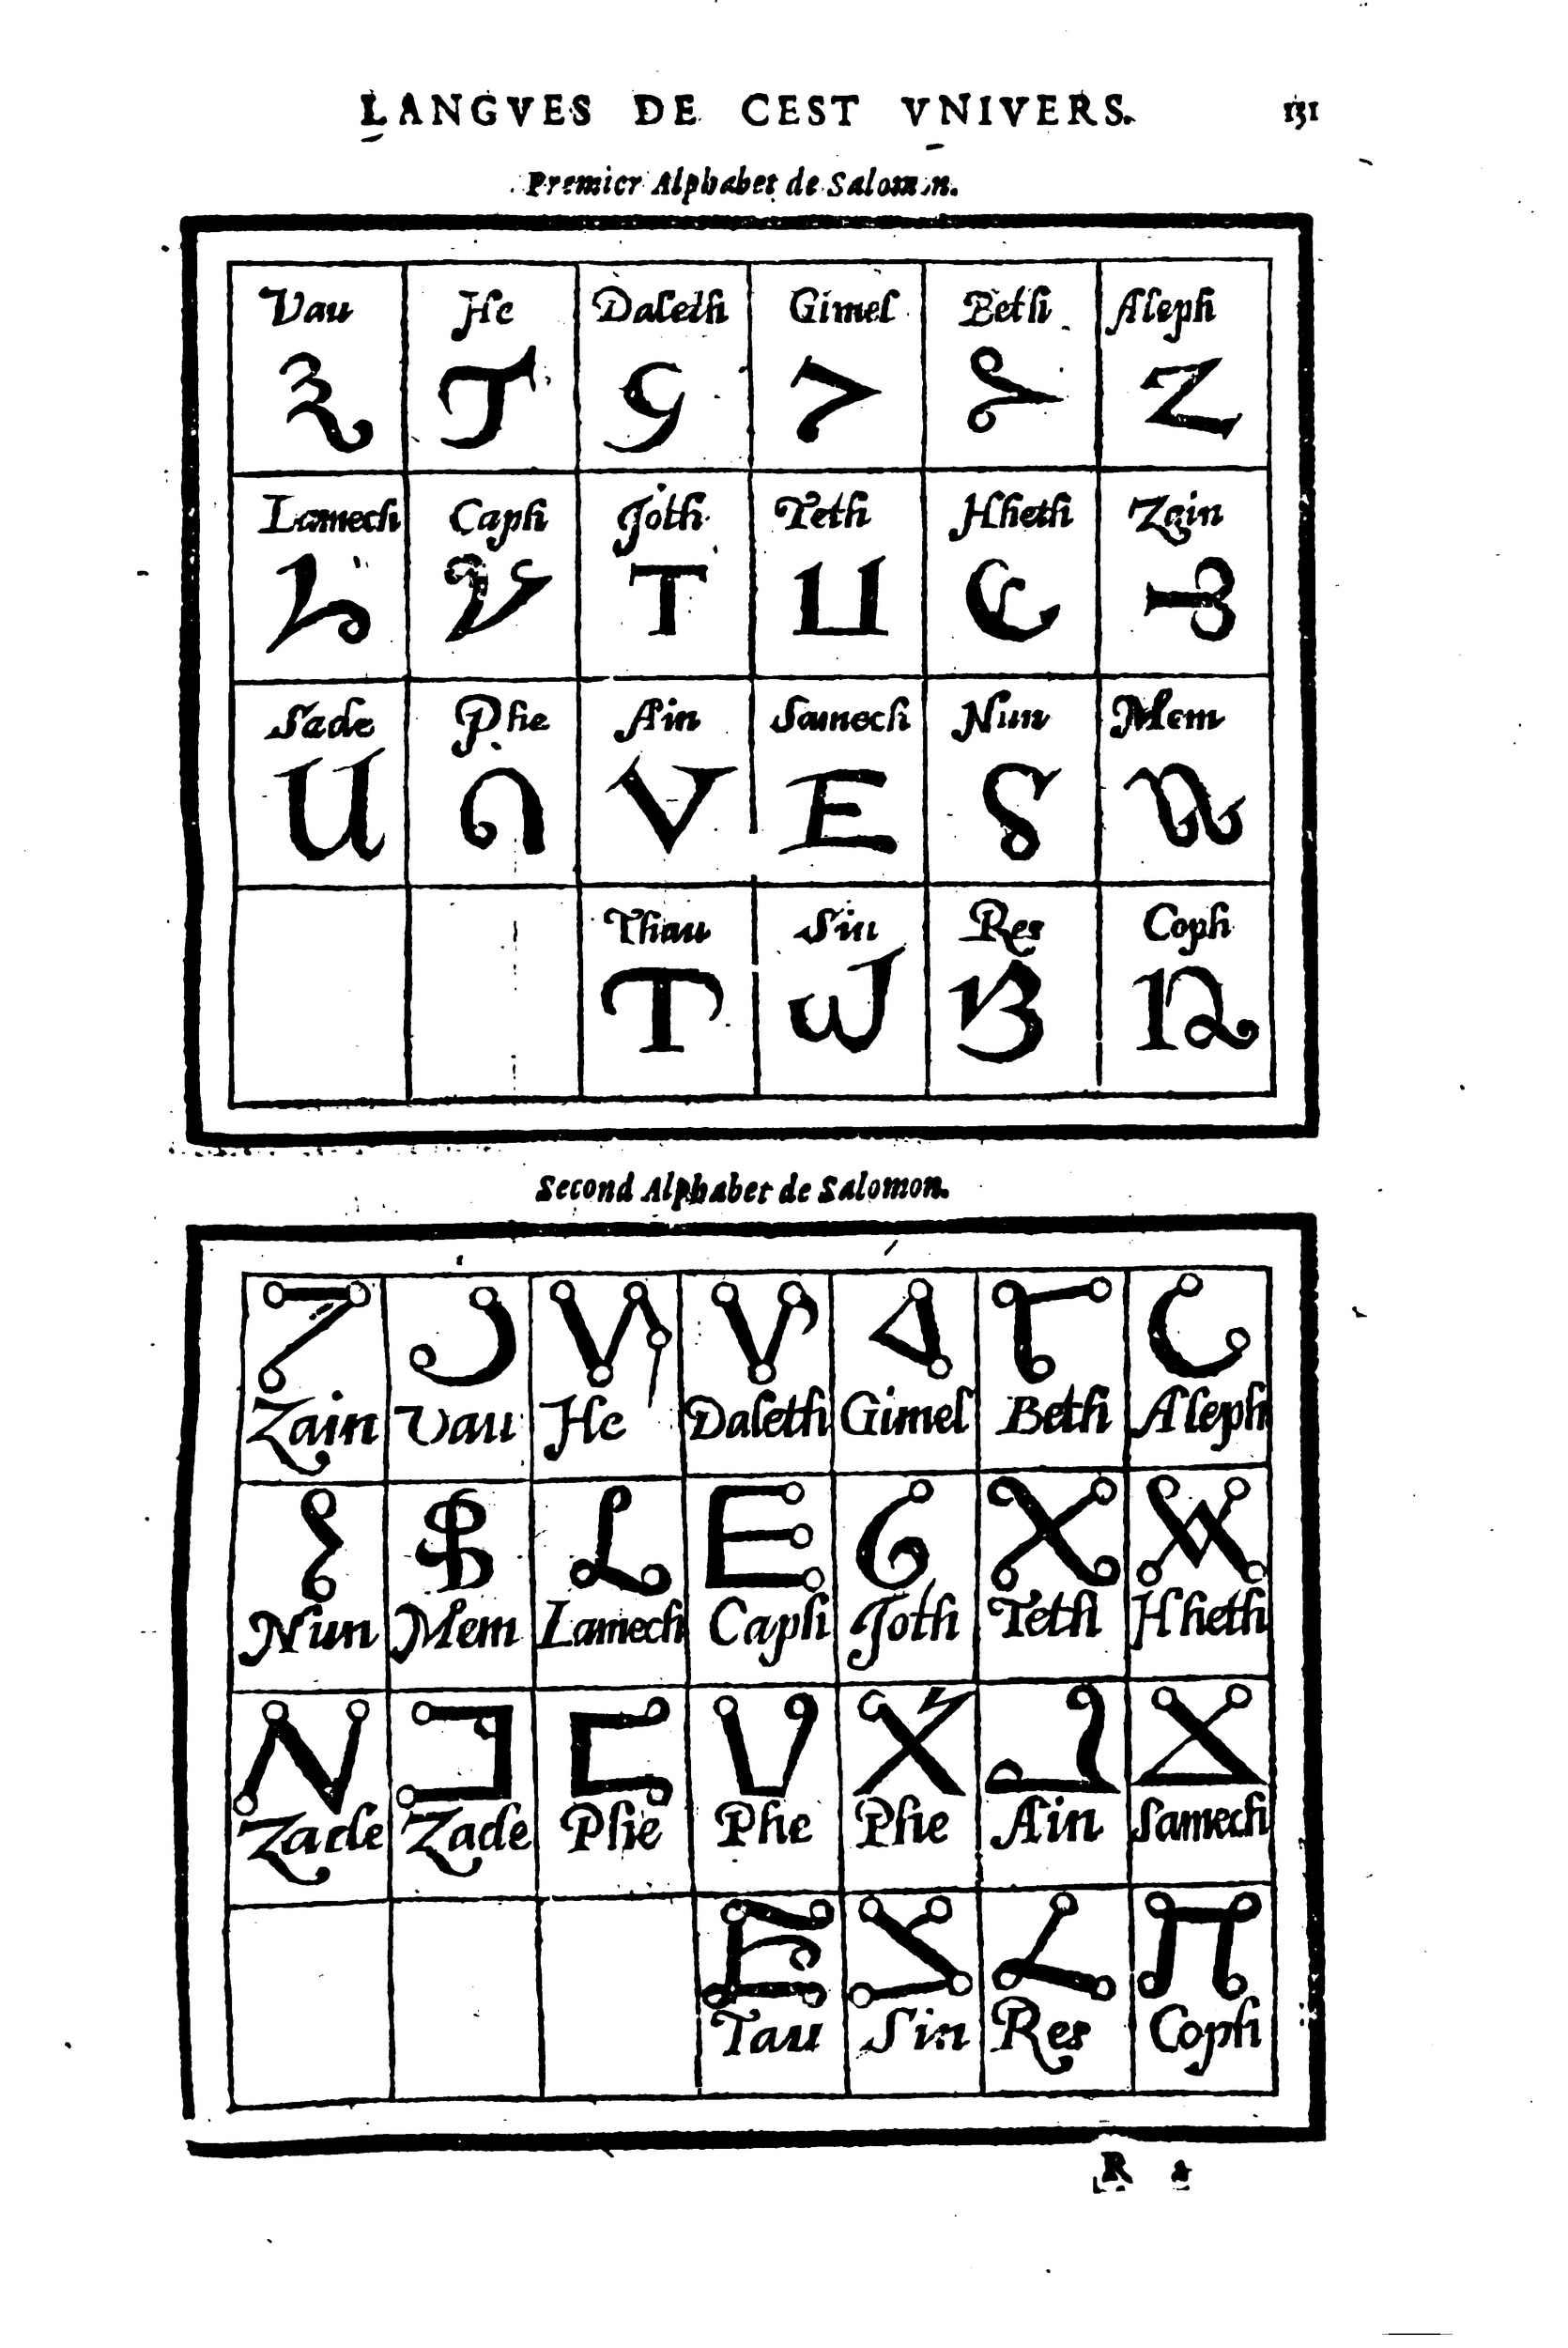 LANGVES DE CEST VNIVERS. 131
Premier Alphabet de Salomon.
Vau He Daleth Gimel Beth Aleph
Lamech Caph Joth Teth Hheth Zain
Sade Phe Ain Samech Nun Mem
Thau Sin Res Coph
Second Alphabet de Salomon.
Zain Vau He Daleth Gimel Beth Aleph
Nun Mem Lamech Caph Joth Teth Hheth
Zade Zade Phe Phe Phe Ain Samech
Tau Sin Res Coph
R